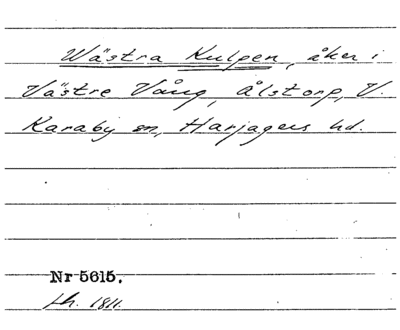 Wästra Kulpen, åker i
Västre Vång, Ålstorp, V.
Karaby sn, Harjagers hd.
Nr 5615.
h. 1811.